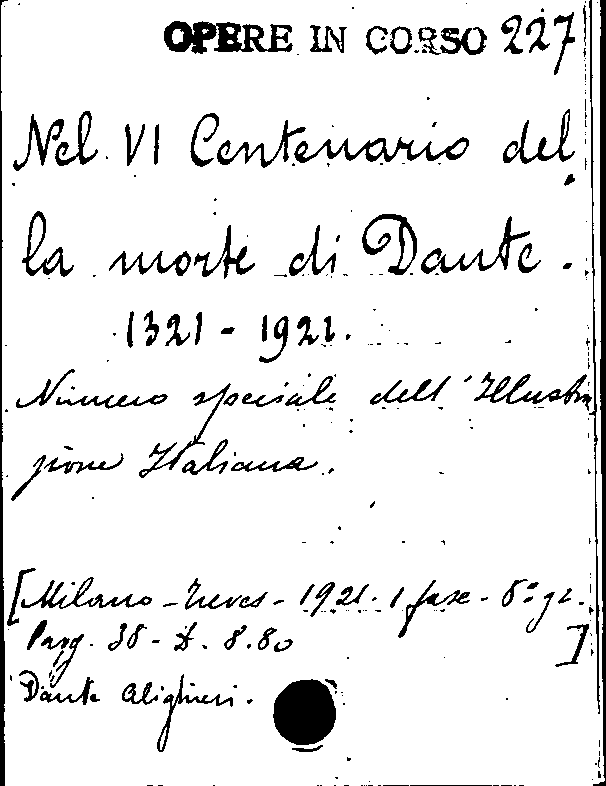 OPERE IN CORSO 227
Nel VI Centenario del
la morte di Dante.
1321 - 1921.
Numero speciale dell'Illustra
zione Italiana.
[Milano - Treves - 1921. 1 fasc. - 8° gr.
Pagg. 38 - £. 8.80 ]
Dante Alighieri.